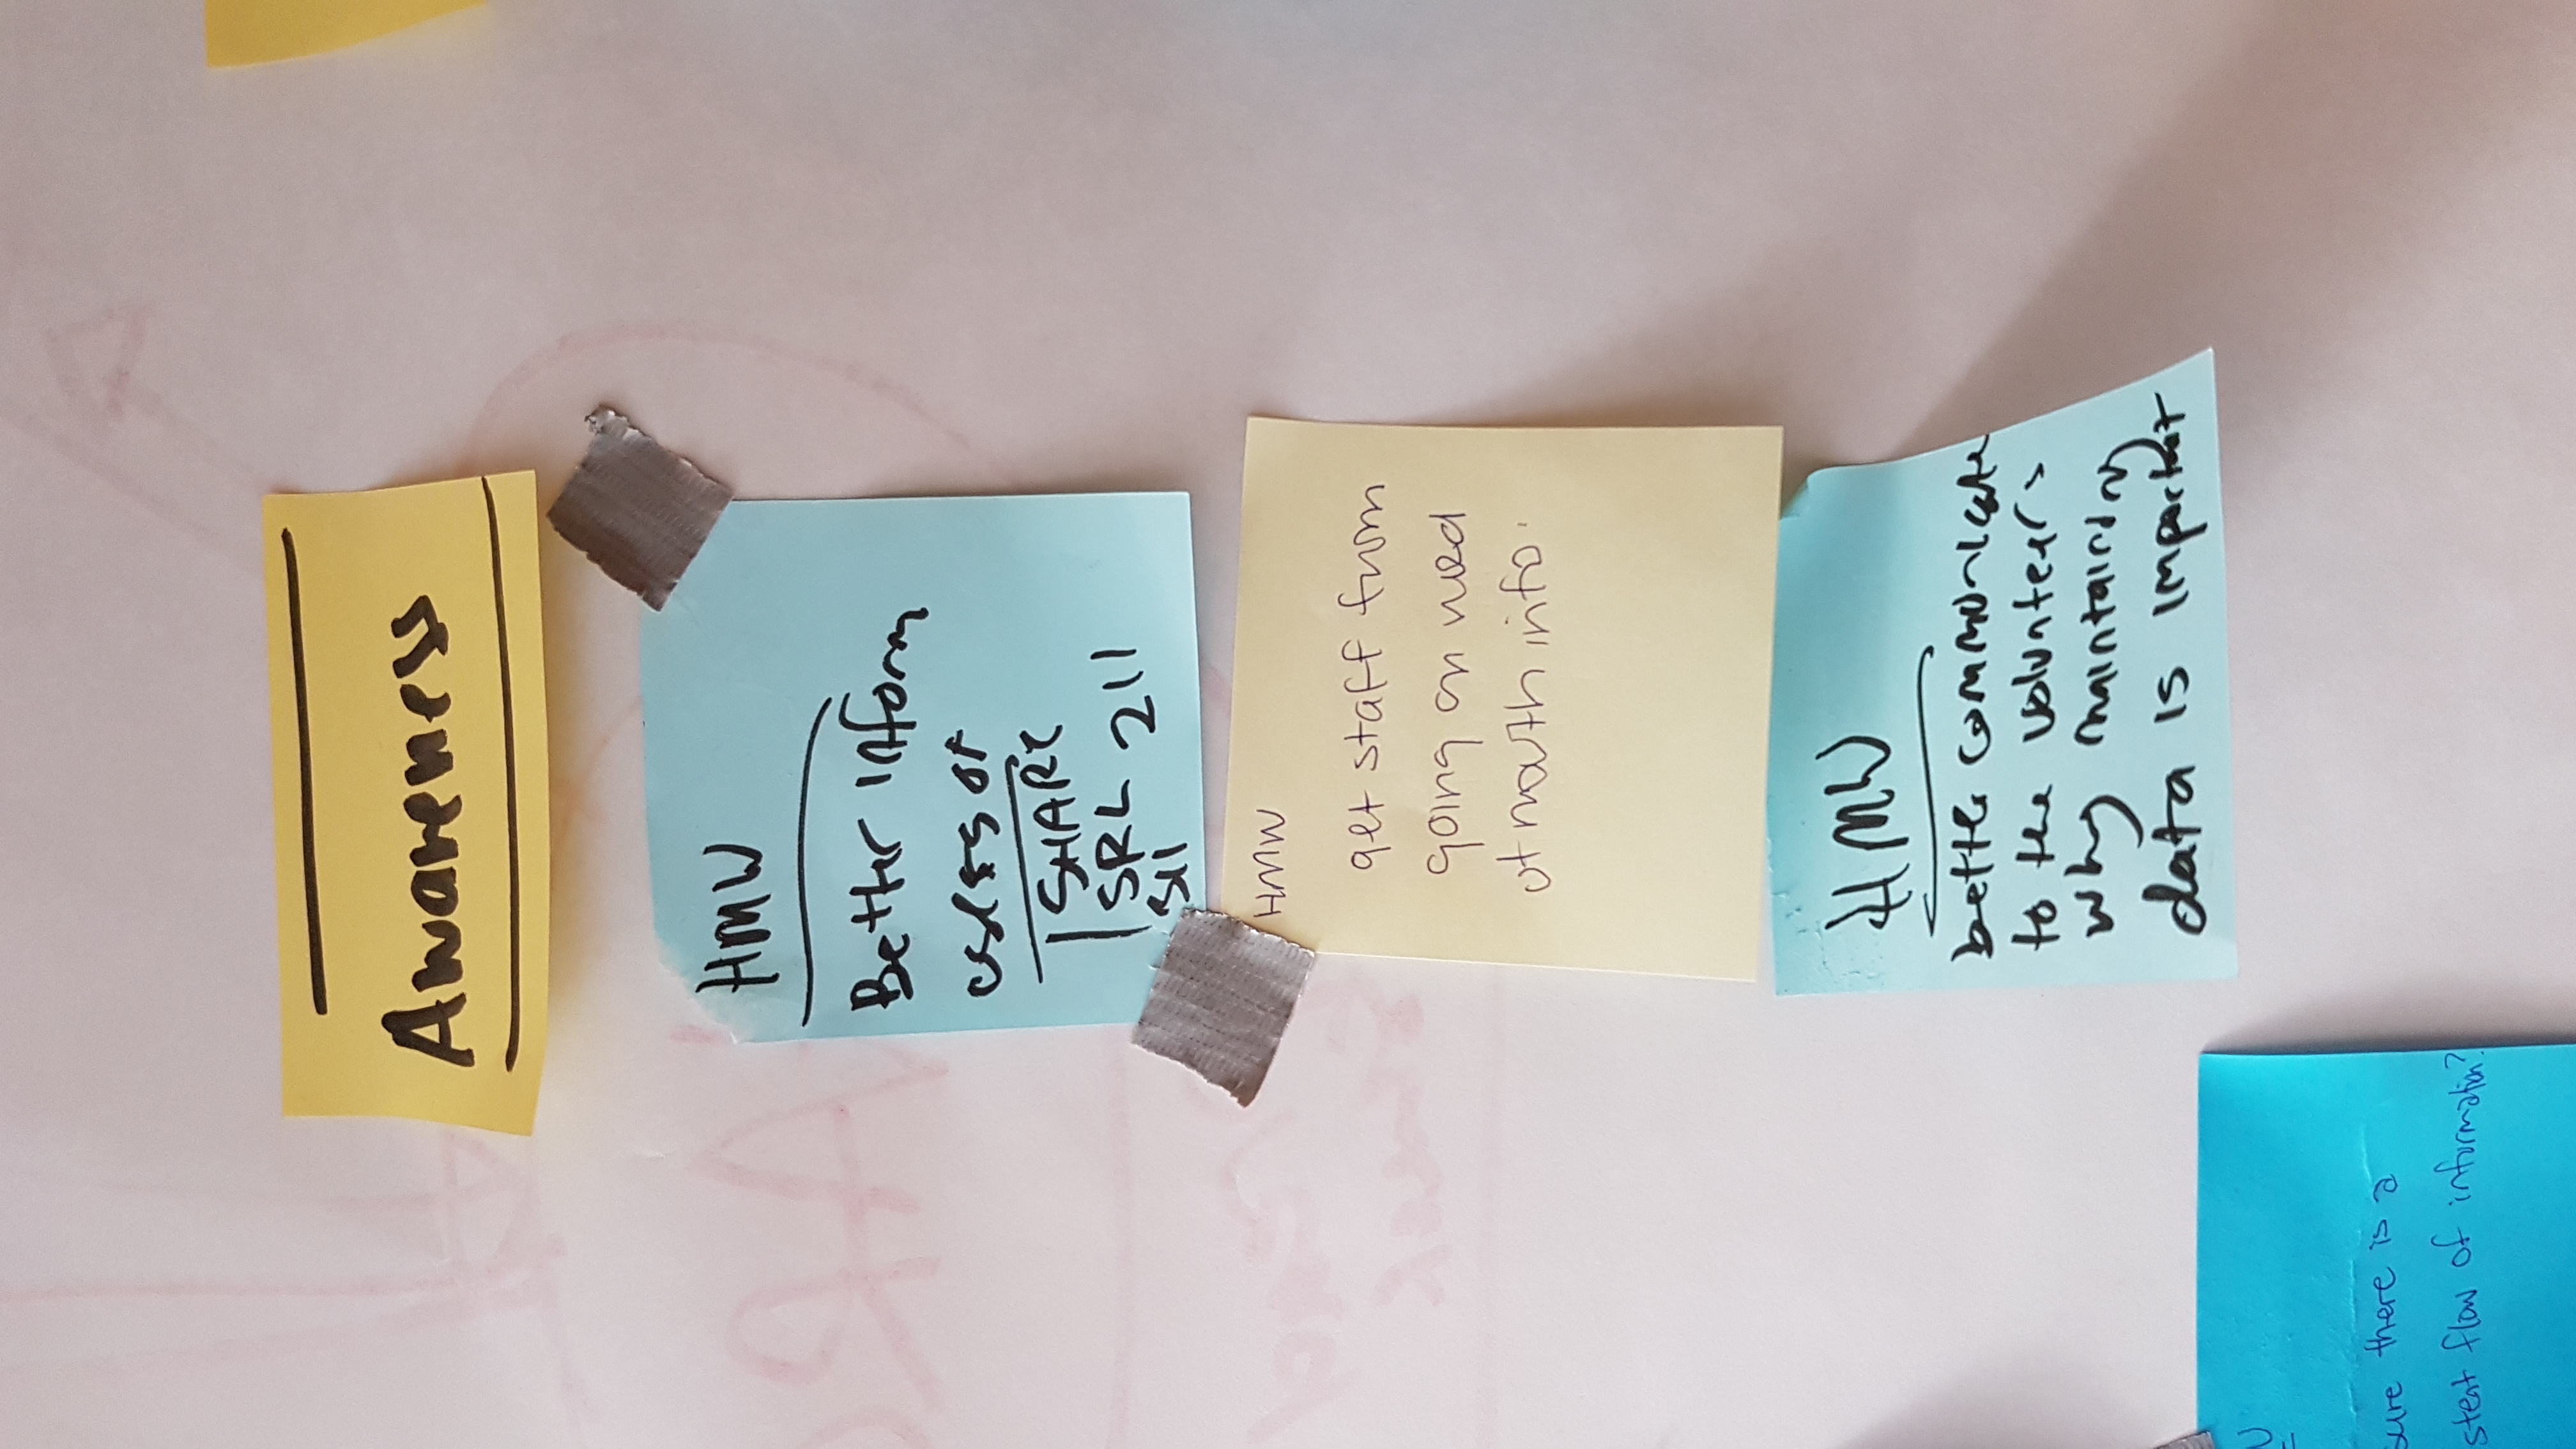 Awareness
HMW
Better inform
of
SHARE
SRL 211
311
HMW
get staff from
going on word
of mouth info.
HMW
better communicate
to the volunteers
why maintaining
data is important
sure there is a
stent flow of information?